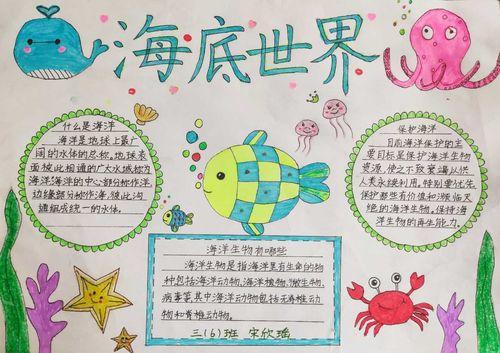 海底世界
什么是海洋
海洋是地球上最广
阔的水体的总称,地球表
面被此相通的广大水域称为
海洋海洋的中心部分称作洋,
边缘部分称作海,彼此沟
通组成统一的水体。
保护海洋
目前海洋保护的主
要目标是保护海洋生物
资源,使之不致衰竭以供
人类永续利用。特别要优先
保护那些有价值和濒临灭
绝的海洋生物,保持海
洋生物的再生能力。
海洋生物有哪些
海洋生物是指海洋里有生命的物
种包括海洋动物,海洋植物,微生物,
病毒等其中海洋动物包括无脊椎动
物和脊椎动物。
三(6)班 宋欣瑶